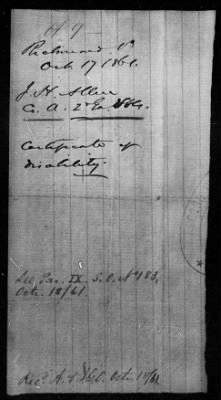 Richmond Va
Oct 17 1861.
J. H. Allen
Co. A. 2d Ga. Vols.
Certificate of
disability.
See Par. IX. S. O. No 183,
Octr. 18/61.
Rec'd A. & I. G. O. Octr 19/61